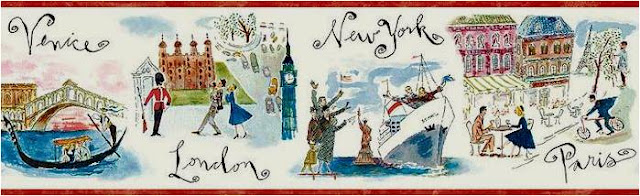 Venice
London
New York
Paris